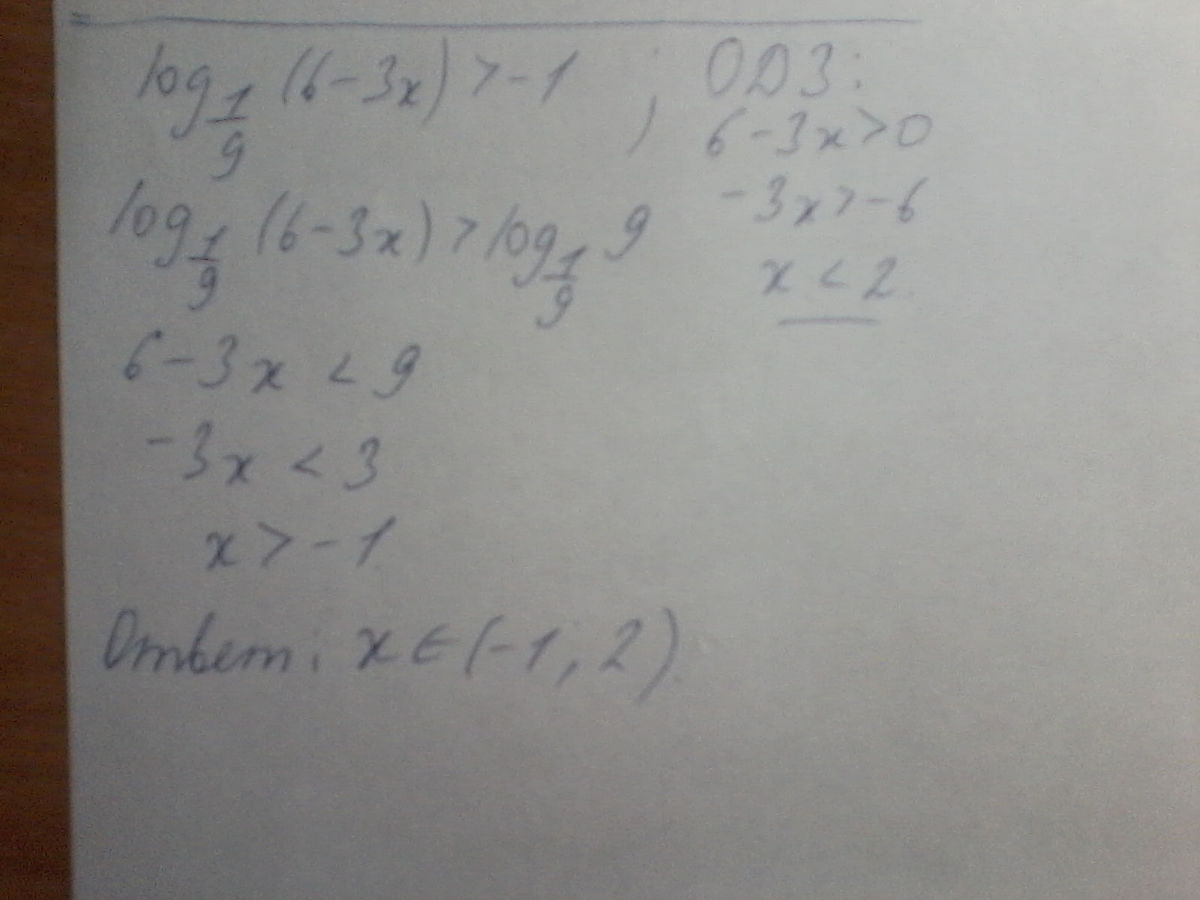 log_{1/9} (6-3x) > -1 ; ОДЗ:
6-3x>0
-3x>-6
x < 2
log_{1/9} (6-3x) > log_{1/9} 9
6-3x < 9
-3x < 3
x > -1
Ответ: x ∈ (-1, 2).